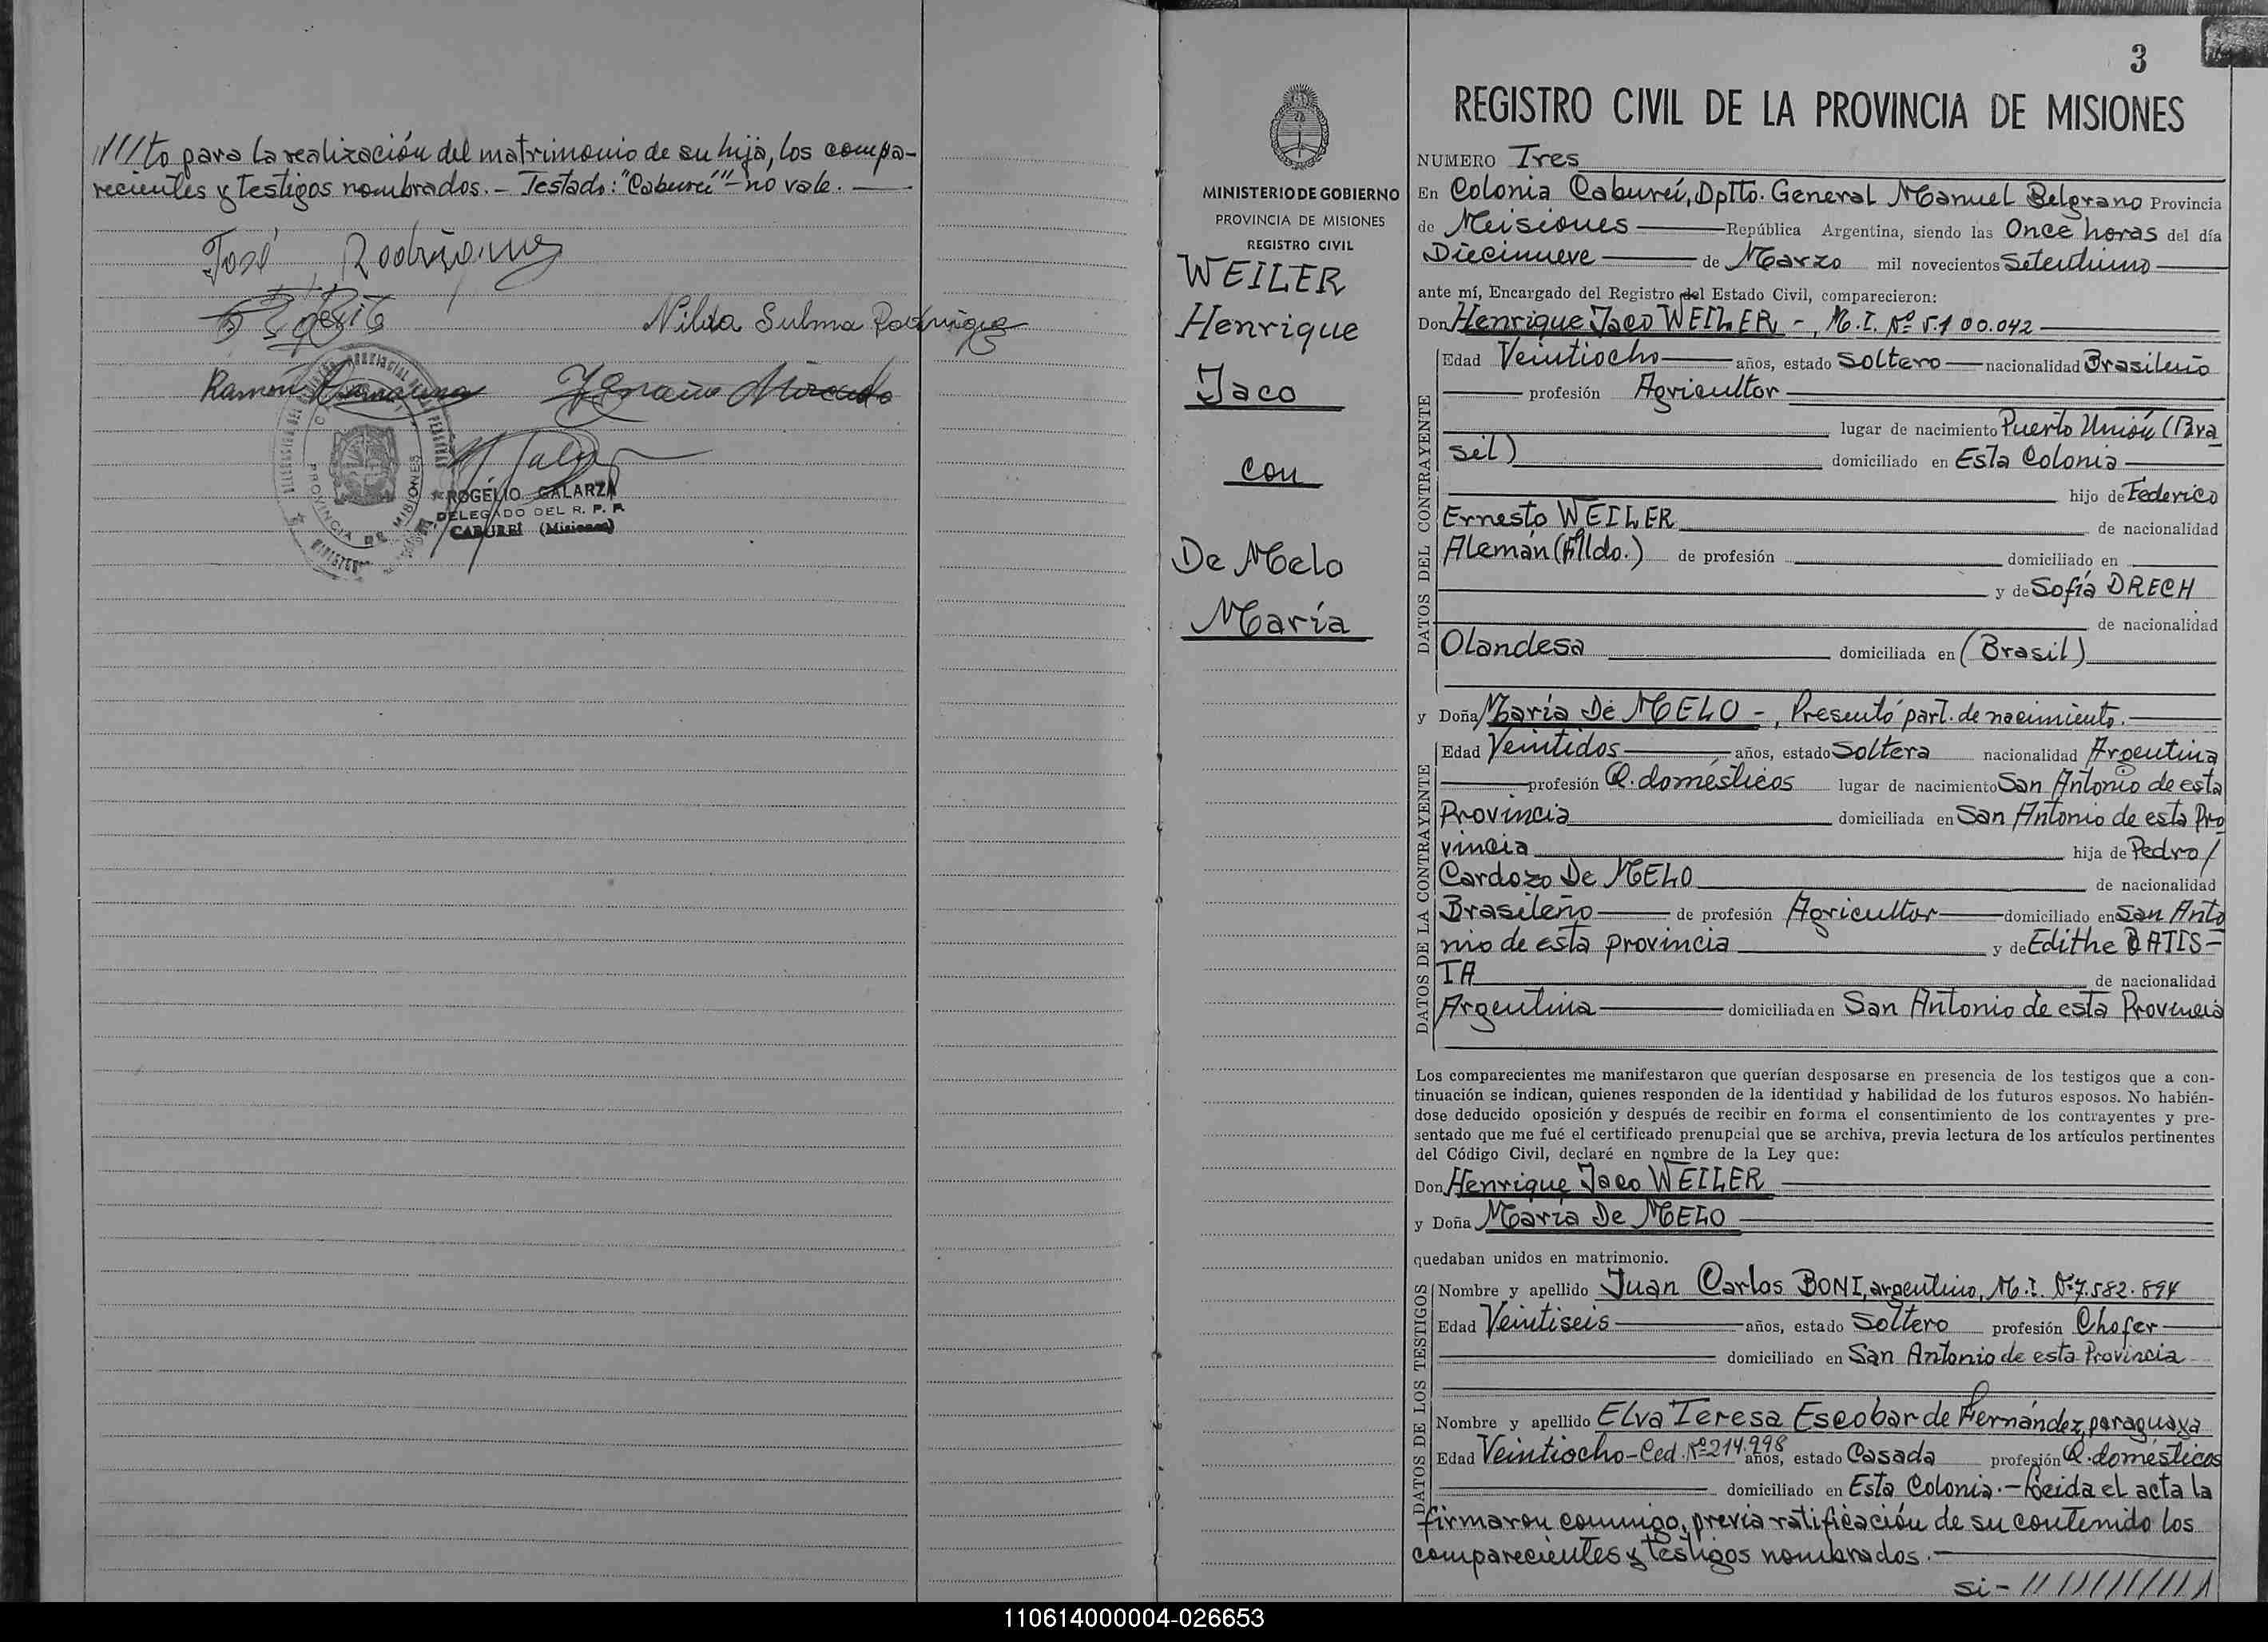 ////to para la realización del matrimonio de su hija, los compa-
recientes y testigos nombrados.- Testado: "Cabureí"-no vale.
José Rodrígues
Nilda Sulma Rodrigues
Ramón
PROVINCIA DE MISIONES
ROGELIO GALARZA
DELEGADO DEL R. P. P.
CABUREI (Misiones)
3
MINISTERIO DE GOBIERNO
PROVINCIA DE MISIONES
REGISTRO CIVIL
WEILER
Henrique
Jaco
con
De Melo
María
REGISTRO CIVIL DE LA PROVINCIA DE MISIONES
NUMERO Tres
En Colonia Cabureí, Dptto. General Manuel Belgrano Provincia
de Meisiones República Argentina, siendo las Once horas del día
Diecinueve de Marzo mil novecientos Setentiuno
ante mí, Encargado del Registro del Estado Civil, comparecieron:
Don Henrique Jaco WEILER -, M.I. Nº 5.100.042
DATOS DEL CONTRAYENTE
Edad Veintiocho años, estado Soltero nacionalidad Brasileño
profesión Agricultor
lugar de nacimiento Puerto Unión (Bra
sil) domiciliado en Esta Colonia
hijo de Federico
Ernesto WEILER de nacionalidad
Alemán (Flldo.) de profesión domiciliado en
y de Sofía DRECH
de nacionalidad
Olandesa domiciliada en (Brasil)
y Doña María De MELO -, Presentó part. de nacimiento.
DATOS DE LA CONTRAYENTE
Edad Veintidos años, estado Soltera nacionalidad Argentina
profesión Q. domésticos lugar de nacimiento San Antonio de esta
Provincia domiciliada en San Antonio de esta Pro
vincia hija de Pedro/
Cardozo De MELO de nacionalidad
Brasileño de profesión Agricultor domiciliado en San Anto
nio de esta provincia y de Edithe BATIS-
TA de nacionalidad
Argentina domiciliada en San Antonio de esta Provincia
Los comparecientes me manifestaron que querían desposarse en presencia de los testigos que a con-
tinuación se indican, quienes responden de la identidad y habilidad de los futuros esposos. No habién-
dose deducido oposición y después de recibir en forma el consentimiento de los contrayentes y pre-
sentado que me fué el certificado prenupcial que se archiva, previa lectura de los artículos pertinentes
del Código Civil, declaré en nombre de la Ley que:
Don Henrique Jaco WEILER
y Doña María De MELO
quedaban unidos en matrimonio.
DATOS DE LOS TESTIGOS
Nombre y apellido Juan Carlos BONI, argentino, M.I. Nº 7.582.894
Edad Veintiseis años, estado Soltero profesión Chofer
domiciliado en San Antonio de esta Provincia
Nombre y apellido Elva Teresa Escobar de Fernández, paraguaya
Edad Veintiocho-Ced. Nº 214.998 años, estado Casada profesión Q. domésticos
domiciliado en Esta Colonia.-Leida el acta la
firmaron conmigo, previa ratificación de su contenido los
comparecientes y testigos nombrados.-
si- ///////////
110614000004-026653